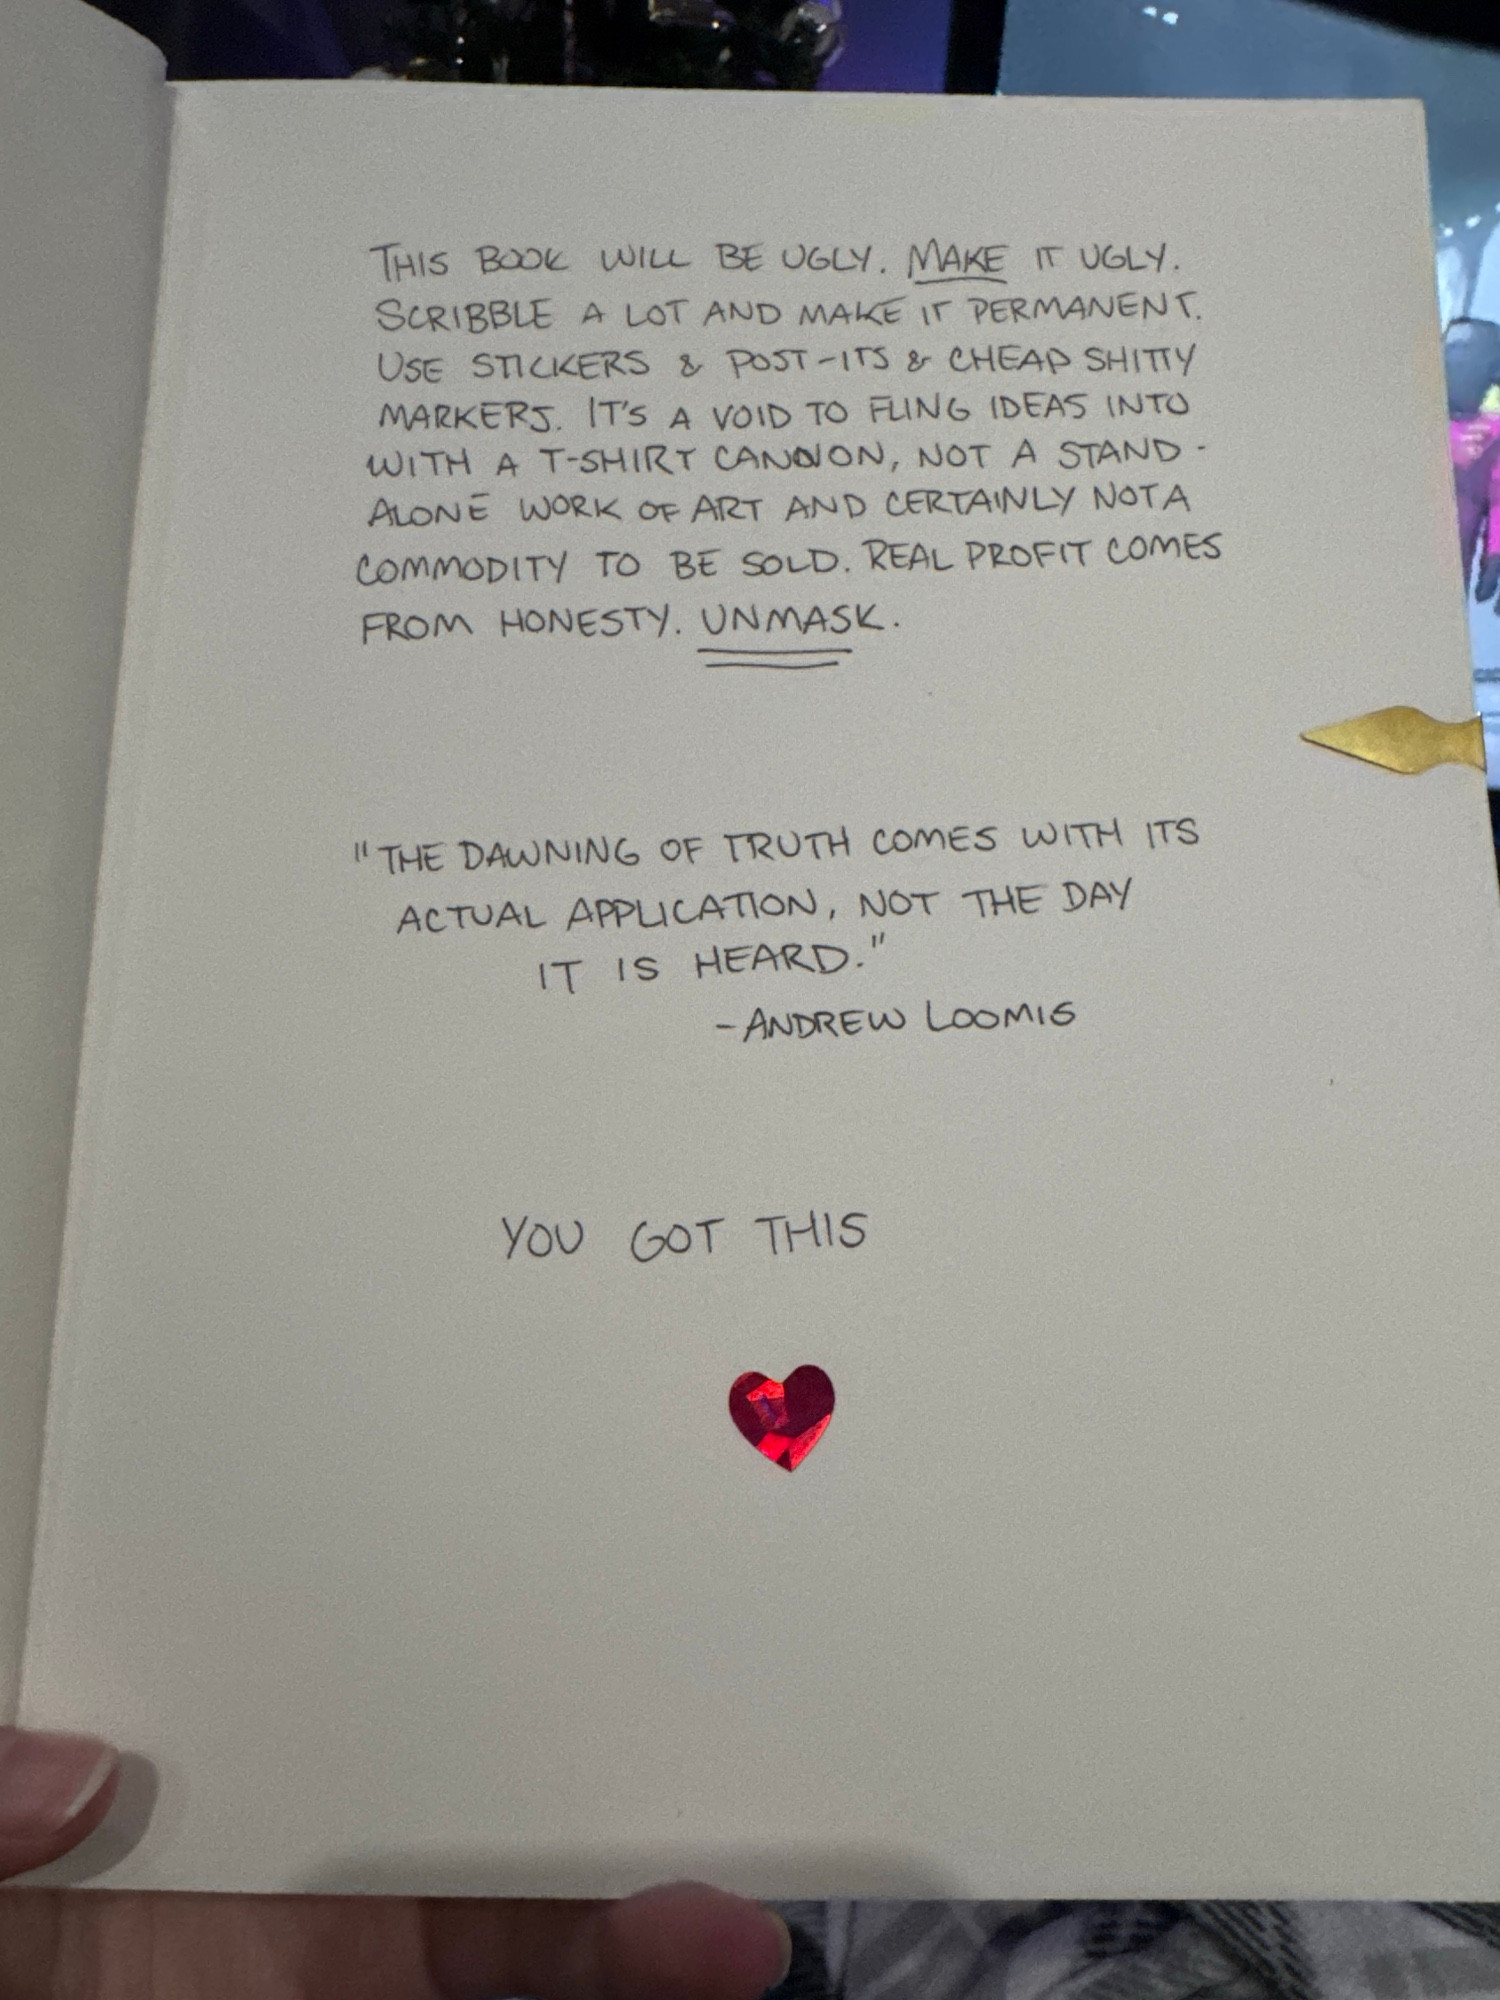 THIS BOOK WILL BE UGLY. MAKE IT UGLY.
SCRIBBLE A LOT AND MAKE IT PERMANENT.
USE STICKERS & POST-ITS & CHEAP SHITTY
MARKERS. IT'S A VOID TO FLING IDEAS INTO
WITH A T-SHIRT CANNON, NOT A STAND-
ALONE WORK OF ART AND CERTAINLY NOT A
COMMODITY TO BE SOLD. REAL PROFIT COMES
FROM HONESTY. UNMASK.
"THE DAWNING OF TRUTH COMES WITH ITS
ACTUAL APPLICATION, NOT THE DAY
IT IS HEARD."
-ANDREW LOOMIS
YOU GOT THIS